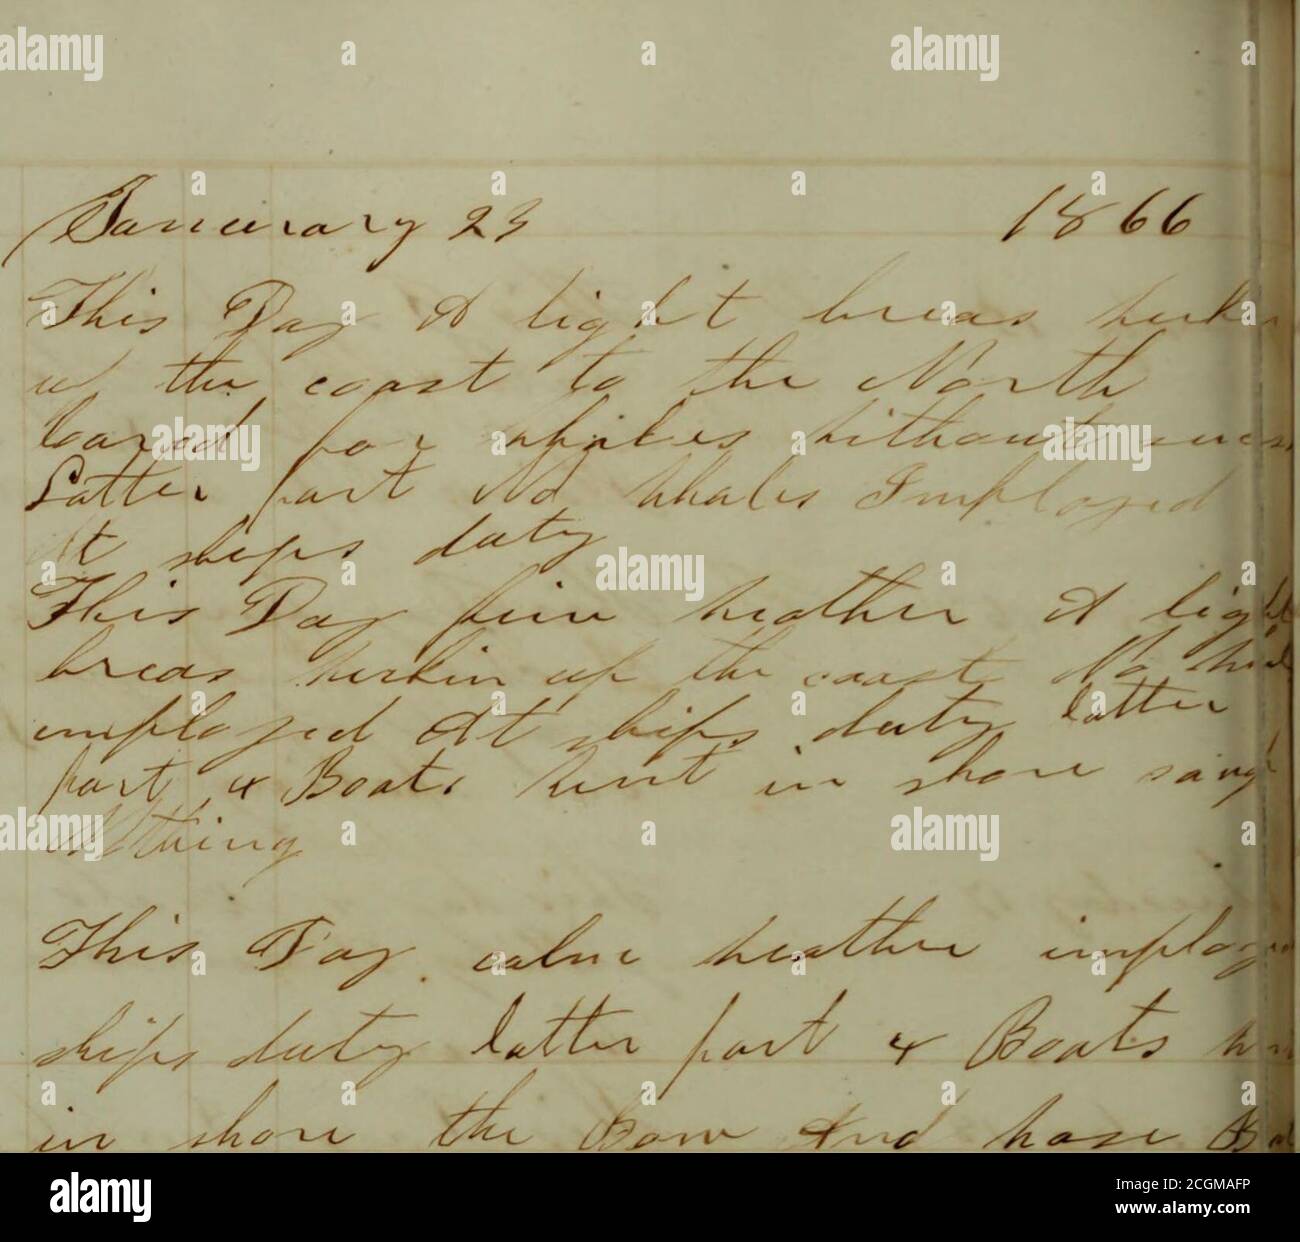 Janeurary 23 1866
This Day A light breas
the coast to the North
for whales without
Latter part No whales Imployed
At ships duty
This Day fine weather A light
breas up the coast No
imployed At ships duty latter
part 4 Boats went in shore
Nothing
This Day calm weather imployed
ships duty latter part 4 Boats
in shore the Bow And
alamy
Image ID: 2CGMAFP
www.alamy.com